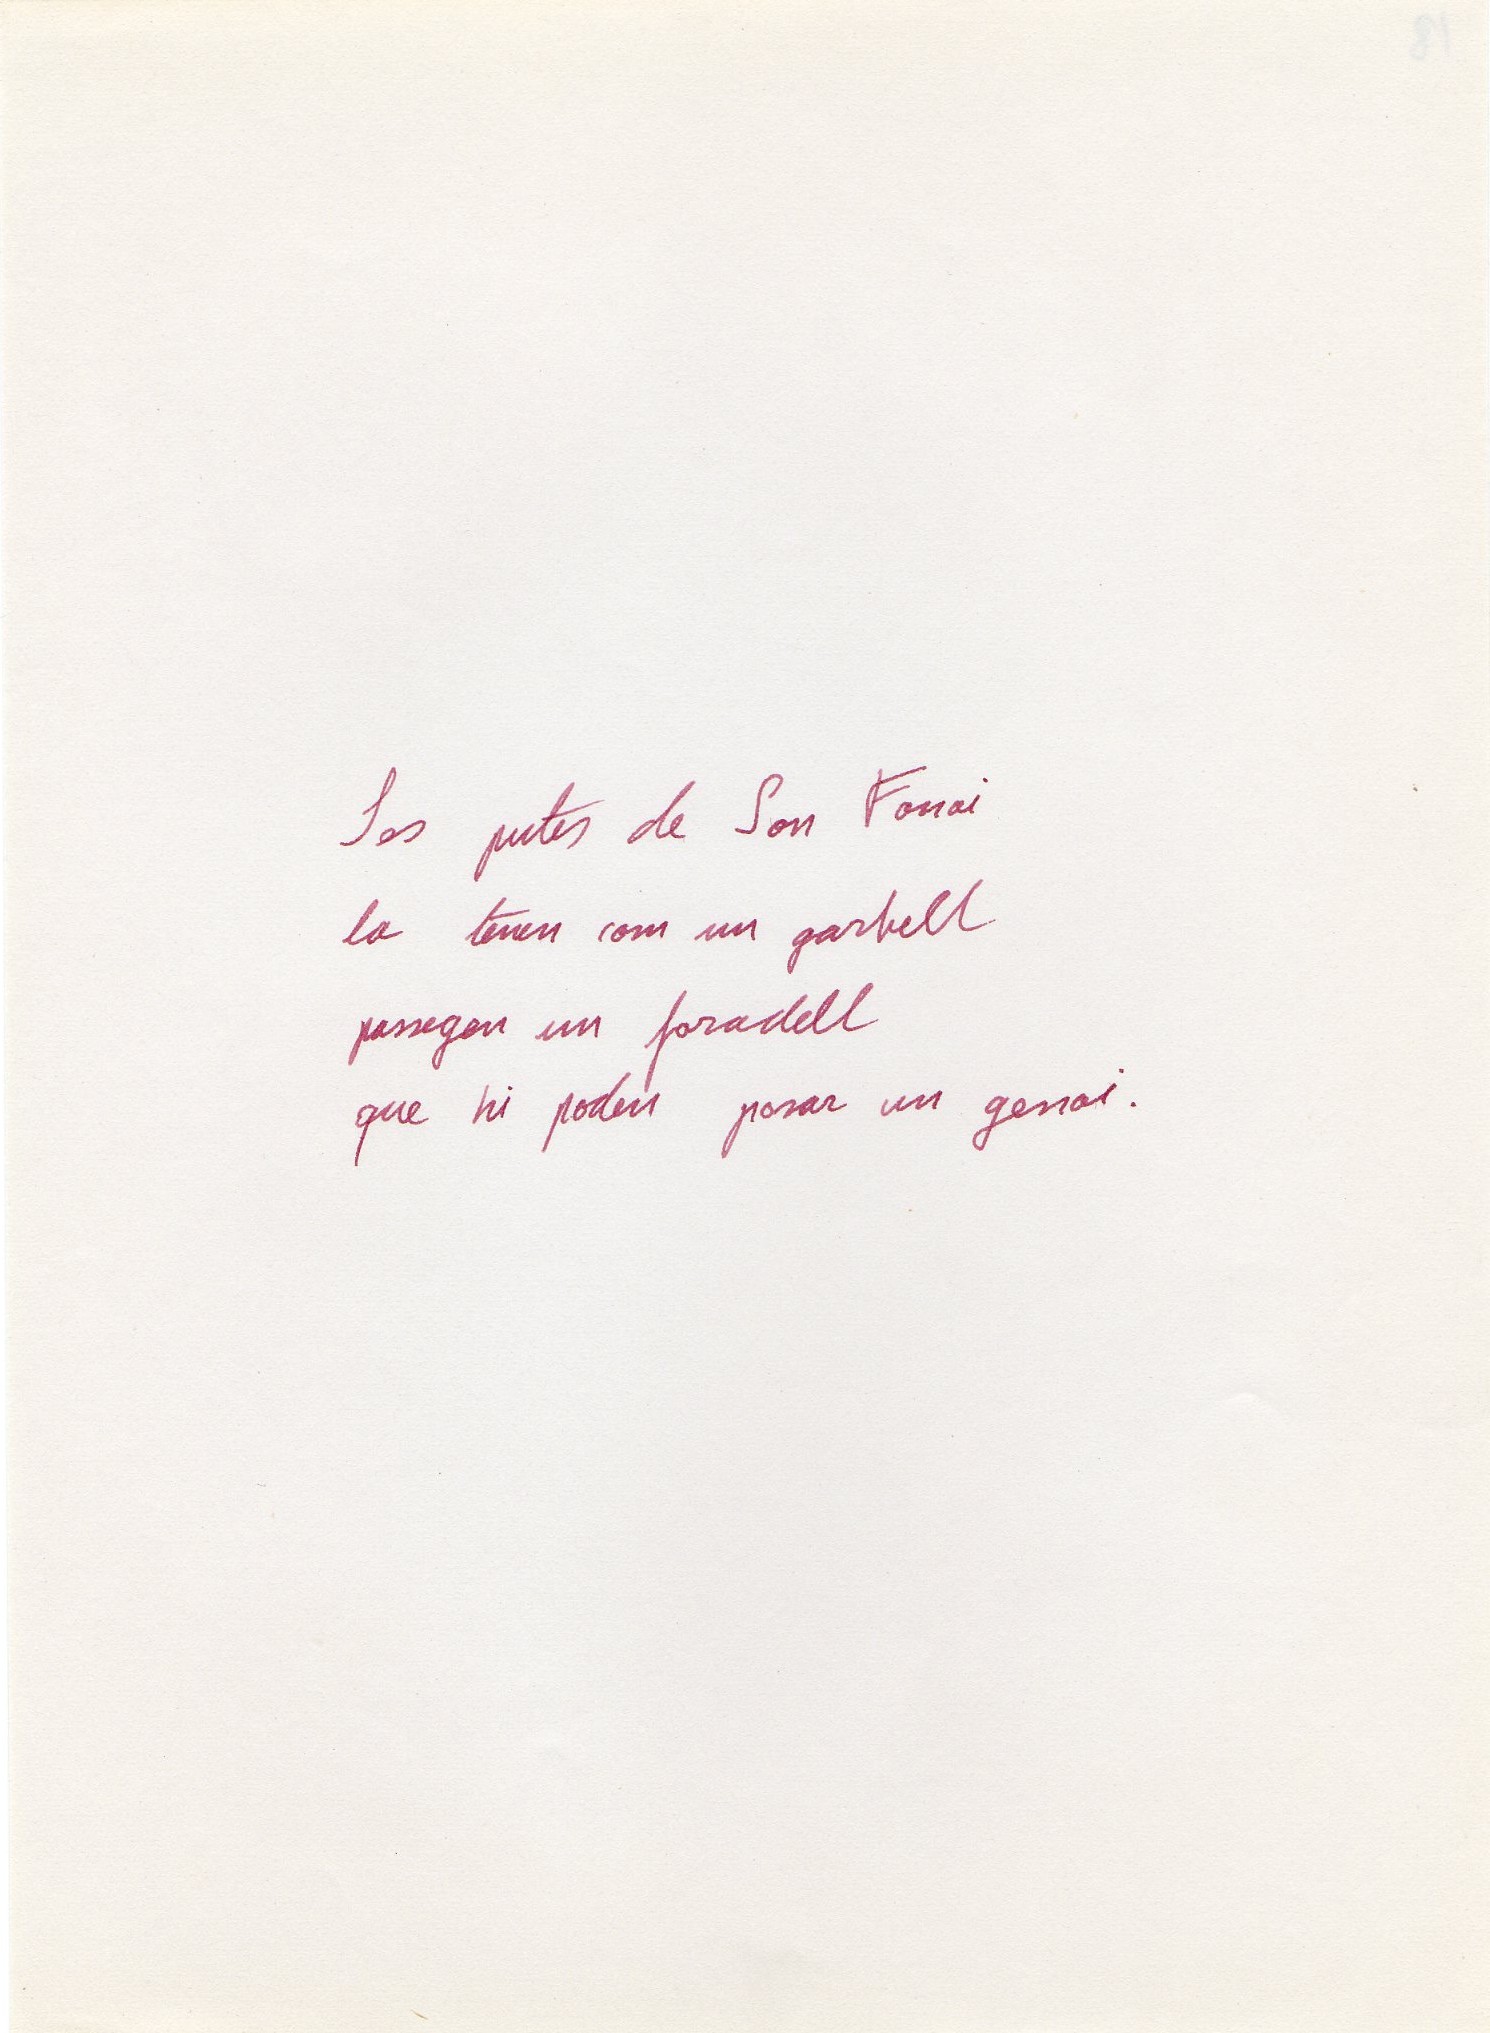 Ses putes de Son Fonoi
la tenen com un garbell
passegen un foradell
que hi poden posar un genoi.